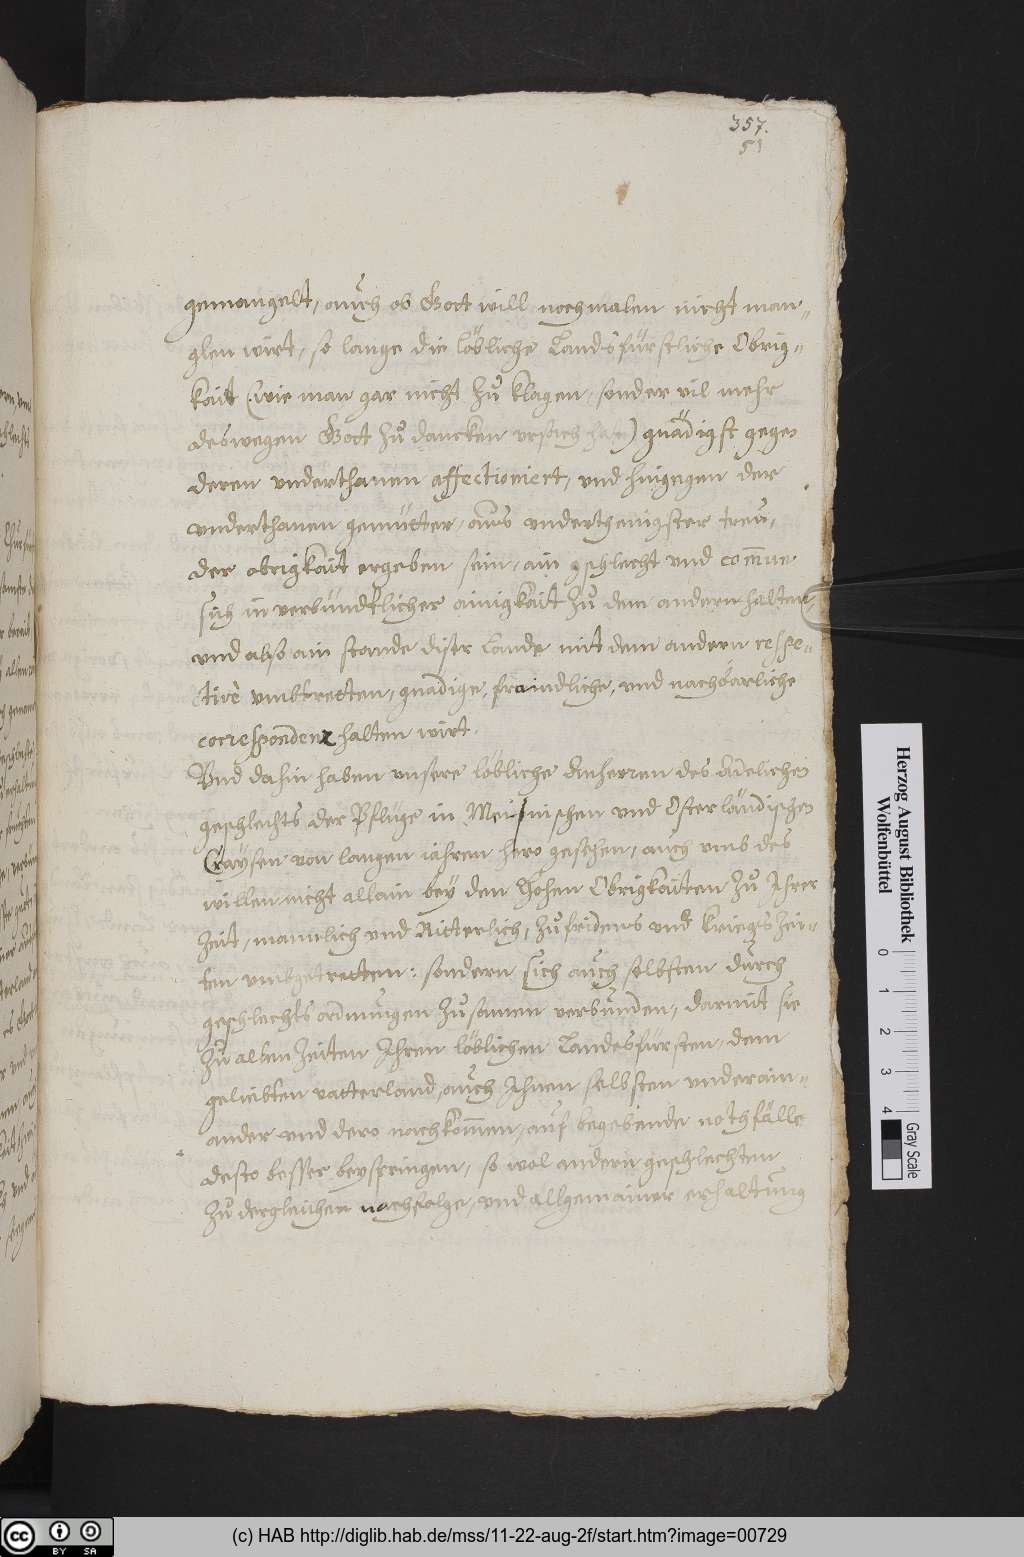 357.
51
gemangelt, auch ob Gott will nochmalen nicht man-
glen wirt, so lange die löbliche Landsfürstliche Obrig-
kait (wie man gar nicht zů klagen, sonder vil mehr
deswegen Gott zů dancken vrsach hat) gnädigst gegen
deren vnderthanen affectioniert, vnd hingegen der
vnderthanen gemütter, aus vnderthenigster treu,
der obrigkait ergeben sein, ain gschlecht vnd commun
sich in verbündtlicher ainigkait zů dem andern halten,
vnd also ain stande diser Lande mit dem andern respe-
ctivè vmbtretten, gnädige, fraindliche, vnd nachbarliche
correspondenz halten wirt.
Vnd dahin haben vnsere löbliche Anherren des Adelichen
geschlechts der Pflüge in Meissnischen vnd Osterländischen
Craÿsen von langen iahren hero gesehen, auch vmb des
willen nicht allain beÿ den Hohen Obrigkaiten zů Ihrer
Zeit, mannlich vnd Ritterlich, zů fridens vnd kriegs Zei-
ten vmbgetretten: sondern sich auch selbsten durch
geschlechts ordnungen zůsamen verbunden, darmit sie
zů allen Zeiten Ihren löblichen Landesfürsten, dem
geliebten vatterland, auch Ihnen selbsten vnderain-
ander vnd dero nachkommen, auf begebende nothfälle
desto besser beyspringen, so wol andern geschlechten
zů dergleichen nachfolge, vnd allgemainer erhaltung
Herzog August Bibliothek
Wolfenbüttel
0 1 2 3 4
Gray Scale
cc BY SA
(c) HAB http://diglib.hab.de/mss/11-22-aug-2f/start.htm?image=00729